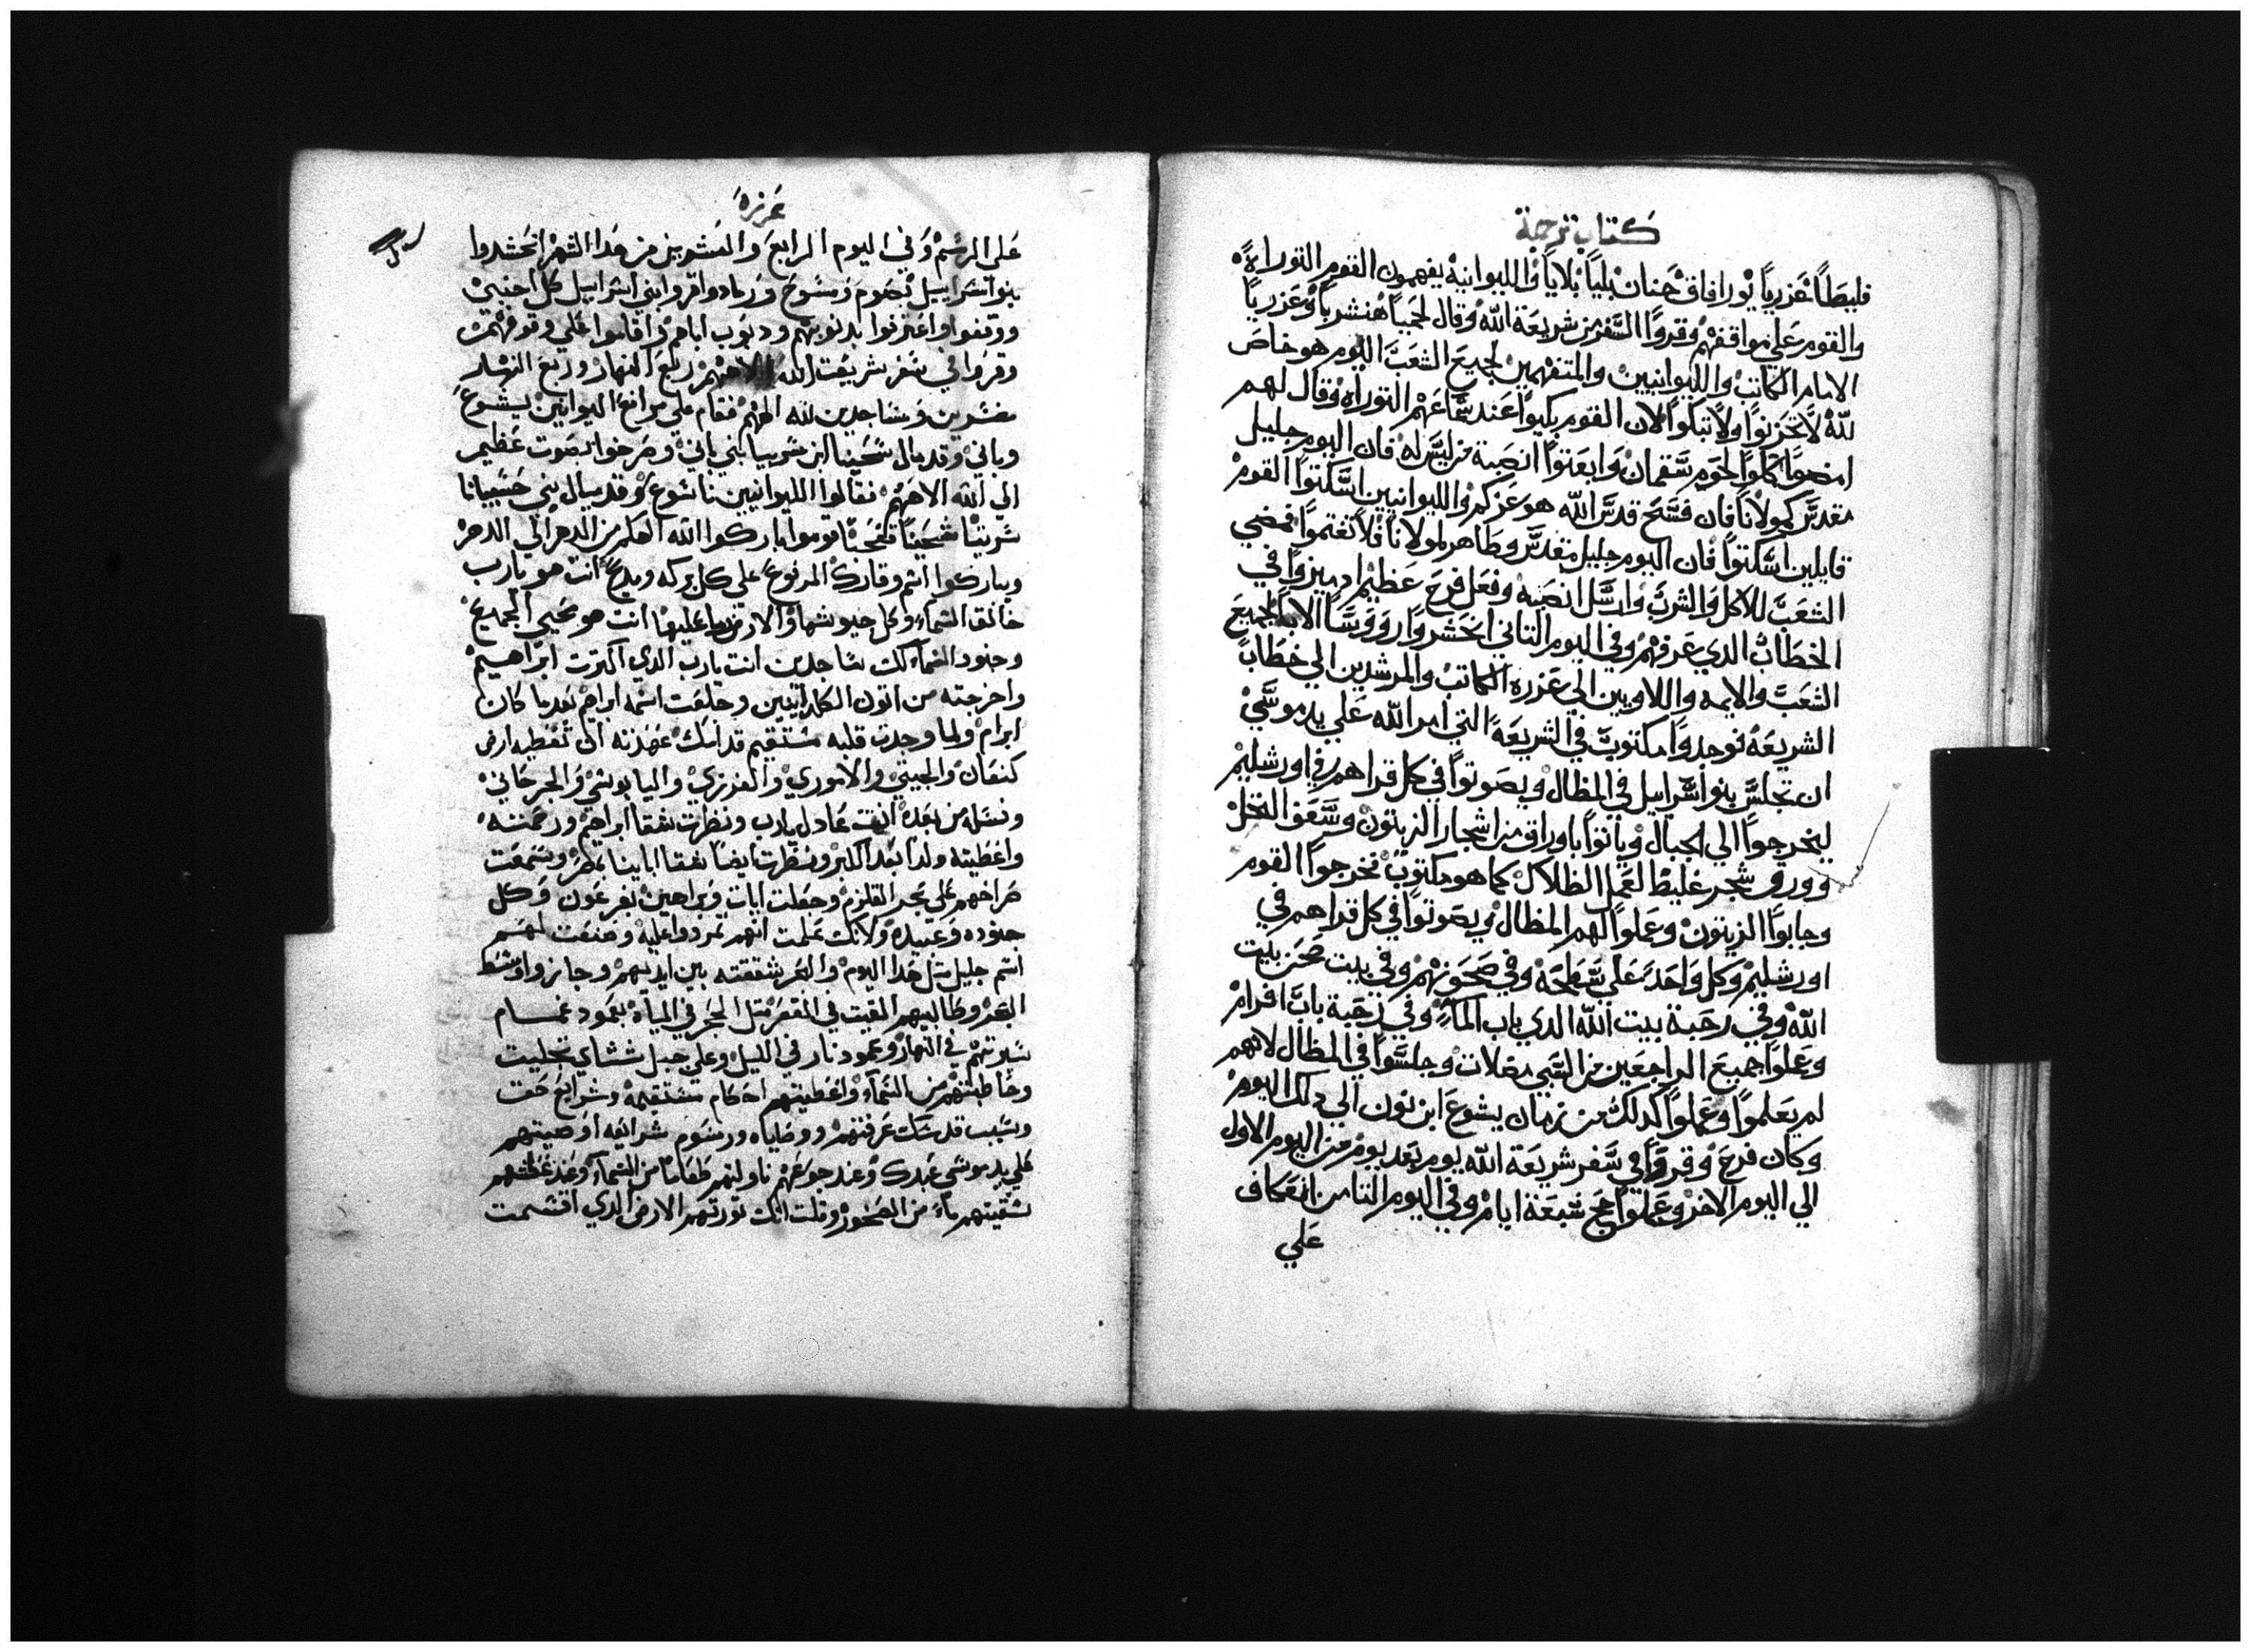 كتاب ترجمة
قليطا عزريا يورافاق حنان بليا بلايا والليوانيه يفهمون القوم التوراة
والقوم علي مواقفهم وقروا السفر من شريعة الله وقال لحميا هنشربا وعزريا
الامام الكاتب والليوانيين والمتفهمين لجميع الشعب اليوم هو خاص
لله لا تحزنوا ولا تبكوا لان القوم بكيوا عند سماعهم التوراه وقال لهم
امضوا كلوا لحوم سمان وابعتوا انصبة من ليس له فان اليوم جليل
مقدس كمولانا فان فسح قدس الله هو عزكم والليوانيين اسكتوا القوم
قايلين اسكتوا فان اليوم جليل مقدس وطاهر لمولانا فلا تغتموا فمضي
الشعب للاكل والشرب وارسل انصبه وفعل فرح عظيم اد ميزوا في
الخطاب الدي عرفهم وفي اليوم التاني انحشروا رووسا الابا لجميع
الشعب والايمه واللاويين الي عزره الكاتب والمرشدين الي خطاب
الشريعه فوجدوا مكتوب في الشريعة التي امر الله علي يد موسي
ان تجلس بنوا اسرايل في المظال ويصوتوا في كل قراهم وفي اورشليم
ليخرجوا الي الجبال وياتوا باوراق من اشجار الزيتون وسعف النخل
وورق شجر غليظ لعمل الظلال كما هو مكتوب فخرجوا القوم
وجابوا الزيتون وعملوا لهم المظال ويصوتوا في كل قراهم في
اورشليم وكل واحد علي سطحه وفي صحونهم وفي بيت صحن بيت
الله وفي رحبة بيت الله الدي باب الماء وفي رحبة باب افرام
وعملوا جميع الراجعين من السبي مظلات وجلسوا في المظال لانهم
لم يعلموا وعملوا كدلك من زمان يشوع ابن نون الي دلك اليوم
وكان فرح وقروا في سفر شريعة الله يوم بعد يوم من اليوم الاول
الي اليوم الاخر وعملوا حج سبعة ايام وفي اليوم التامن انعكاف
علي
عزره
علي الرسم وفي اليوم الرابع والعشرين من هدا الشهر انحشدوا
بنوا اسراييل بصوم ومسوح ورماد واقروا بني اسراييل كل اجنبي
ووقفوا واعترفوا بدنوبهم ودنوب اباهم واقاموا علي وقوفهم
وقروا في سفر شريعت الله الاههم ربع النهار وربع النهار
مقرين وساجدين لله الههم فقام علي مراقع الليوانيين يشوع
وباني وقدميال شحنيا ابن شربيا بني باني وصرخوا بصوت عظيم
الي الله الاههم فقالوا الليوانيين ناشوع وقدميال بني حشبيانا
شربيا شحنيا فتحيا قوموا باركوا الله الهكم من الدهر الي الدهر
ويباركوا اسم وقارك المرفوع علي كل بركه ومديح انت هو يارب
خالق السماء وكل جيوشها والارض وما عليها انت هو محيي الجميع
وجنود السماء لك ساجدين انت يارب الدي اخترت ابراهيم
واخرجته من اتون الكلدانيين وجعلت اسمه ابراهيم بعد ما كان
ابرام ولما وجدت قلبه مستقيم قدامك عهدته ان تعطيه ارض
كنعان والحيتي والاموري والفرزي واليابوسي والجرجاني
ونسله من بعده انت عادل يارب ونظرت شقا ابراهيم ورحمته
واعطيته ولدا بعد الكبر ونظرت ايضا شقا اباينا بمصر وسمعت
صراخهم علي بحر القلزم وجعلت ايات وبراهين بفرعون وكل
جنوده وعبيده ولانك علمت انهم تمردوا عليه وصنعت لهم
اسم جليل متل هدا اليوم والبحر شققته بين ايديهم وجازوا وسط
البحر وطالبيهم القيت في القعر متل الحجر في المياه بعمود غمام
سيرتهم في النهار وعمود نار في الليل وعلي جبل سيناي تجليت
وخاطبتهم من السماء واعطيتهم احكام مستقيمه وشرايع حق
وسبت قدسك عرفتهم ووصاياه ورسوم شرايعه اوصيتهم
علي يد موسي عبدك وعند جوعهم ناولتهم طعاما من السماء وعند عطشهم
سقيتهم ماء من الصخور وقلت انك تورتهم الارض الدي اقسمت